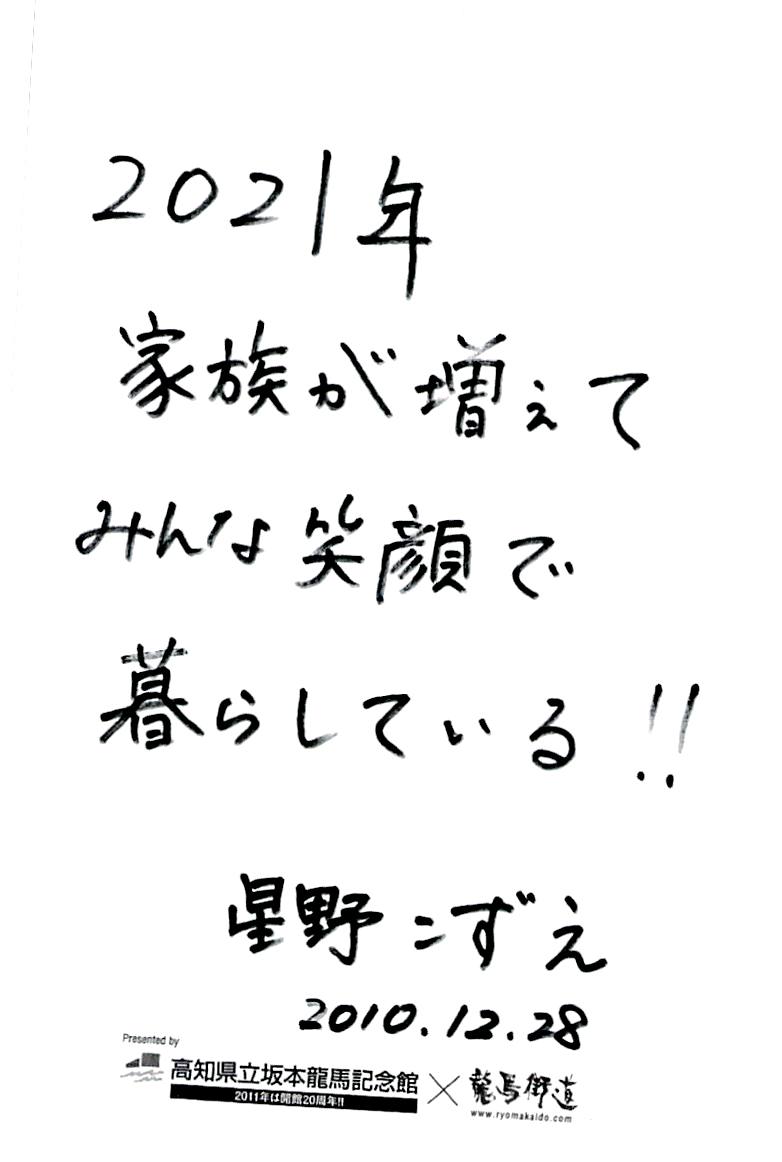 2021年
家族が増えて
みんな笑顔で
暮らしている!!
星野こずえ
2010.12.28
Presented by
高知県立坂本龍馬記念館 × 龍馬街道
2011年は開館20周年!!
www.ryomakaido.com